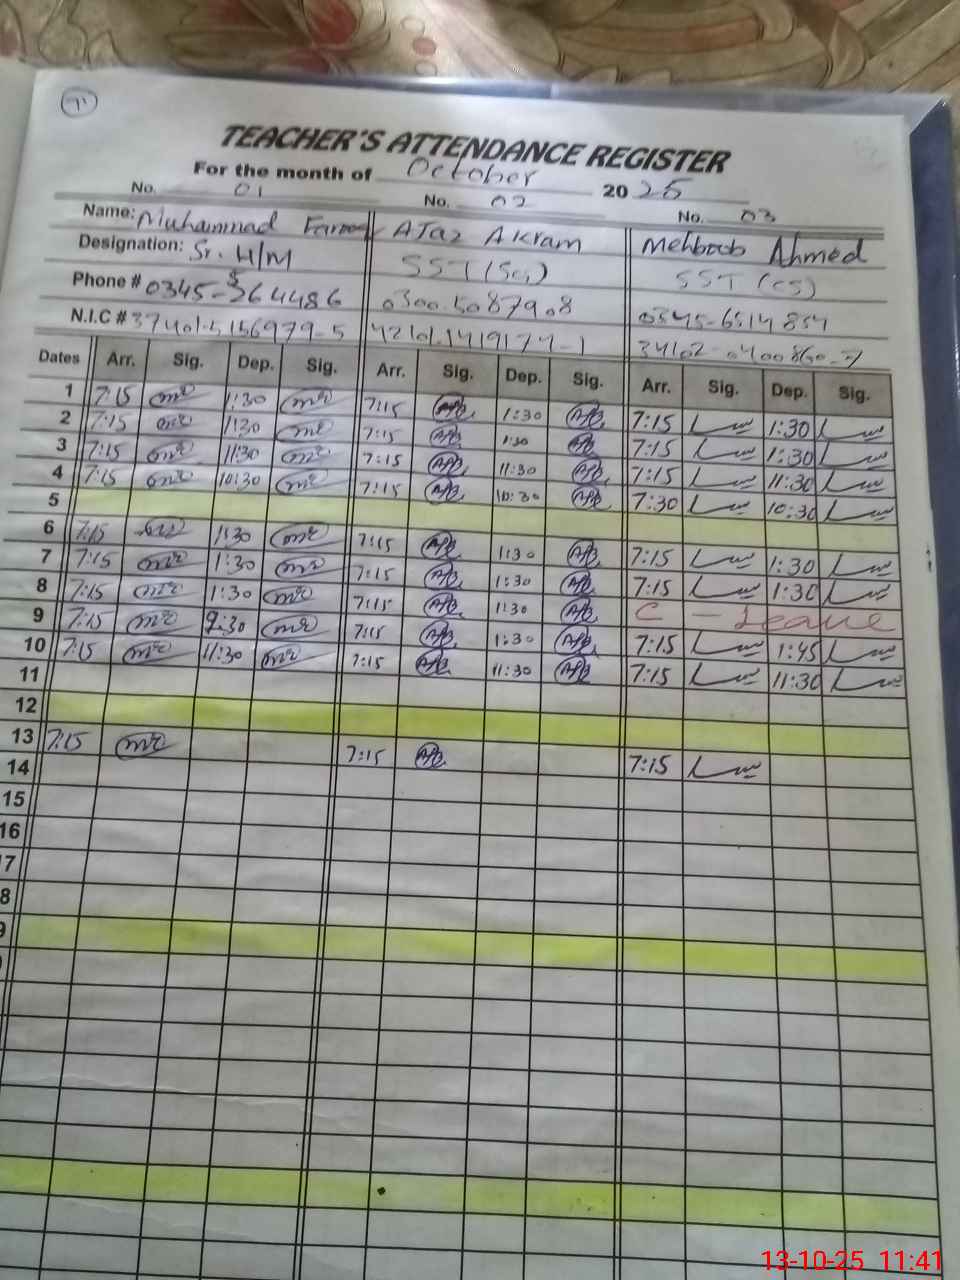 TEACHER'S ATTENDANCE REGISTER
For the month of October 2025
No. 01 No. 02 No. 03
Name: Muhammad AJaz Akram Mehboob Ahmed
Designation: Sr. H/M SST (Sci) SST (CS)
Phone # 0300.5087908 0345-6514854
N.I.C # 37401.5156979-5 42101.1419174-1 34102-0400860-7
Dates Arr. Sig. Dep. Sig. Arr. Sig. Dep. Sig. Arr. Sig. Dep. Sig.
1 7:15 1:30 7:15 1:30 7:15 1:30
2 7:15 1:30 7:15 1:30 7:15 1:30
3 7:15 11:30 7:15 11:30 7:15 11:30
4 7:15 10:30 7:15 10:30 7:30 10:30
5
6 7:15 1:30 7:15 1:30 7:15 1:30
7 7:15 1:30 7:15 1:30 7:15 1:30
8 7:15 1:30 7:15 1:30 C - Leave
9 7:15 9:30 7:15 1:30 7:15 1:45
10 7:15 11:30 7:15 11:30 7:15 11:30
11
12
13 7:15 7:15 7:15
14
15
16
7
8
9
13-10-25 11:41